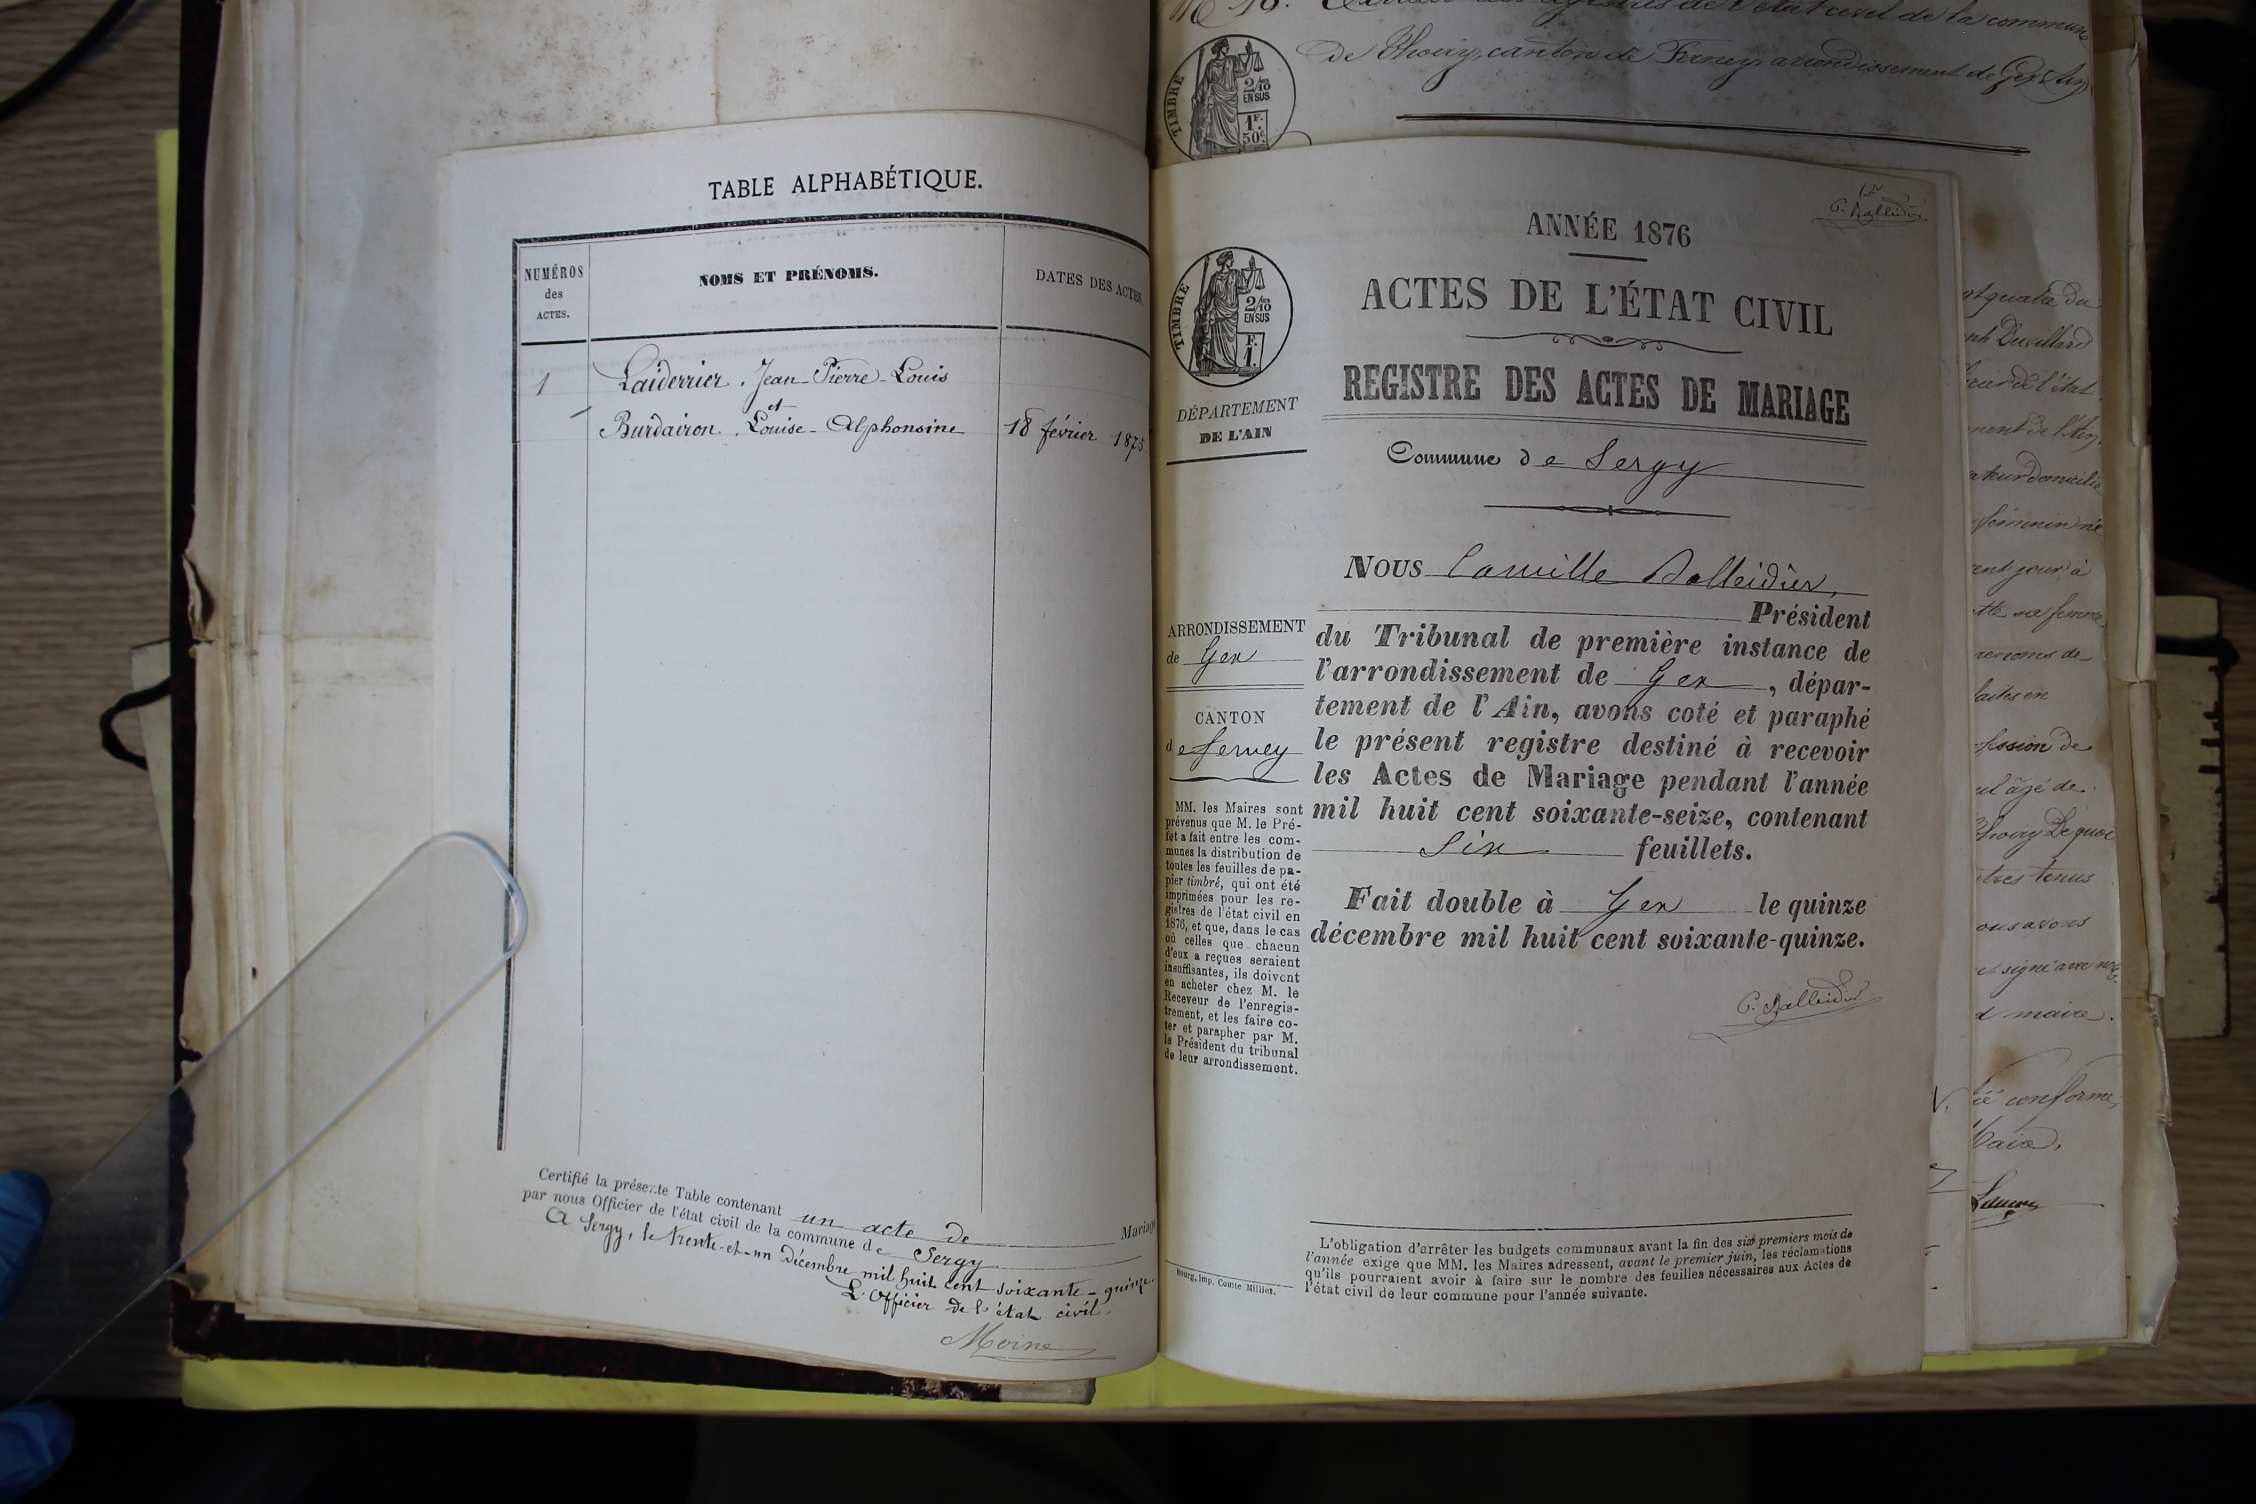 TABLE ALPHABÉTIQUE.
NUMÉROS
des
ACTES.
NOMS ET PRÉNOMS.
DATES DES ACTES.
1 Laiderrier, Jean-Pierre-Louis
et
Burdairon, Louise-Alphonsine 18 février 1875.
Certifié la présente Table contenant un acte de Mariage
par nous Officier de l'état civil de la commune de Sergy
A Sergy, le trente-et-un Décembre mil huit cent soixante-quinze.
L'Officier de l'état civil.
Moine
de Thoiry, canton de Ferney, arrondissement de Gex (Ain)
TIMBRE
2/10
EN SUS
1F.
50c.
C. Balleidier
ANNÉE 1876
ACTES DE L'ÉTAT CIVIL
REGISTRE DES ACTES DE MARIAGE
TIMBRE
2/10
EN SUS
F.
1.
DÉPARTEMENT
DE L'AIN
Commune de Sergy
ARRONDISSEMENT
de Gex
CANTON
de Ferney
MM. les Maires sont
prévenus que M. le Pré-
fet a fait entre les com-
munes la distribution de
toutes les feuilles de pa-
pier timbré, qui ont été
imprimées pour les re-
gistres de l'état civil en
1876, et que, dans le cas
où celles que chacun
d'eux a reçues seraient
insuffisantes, ils doivent
en acheter chez M. le
Receveur de l'enregis-
trement, et les faire co-
ter et parapher par M.
le Président du tribunal
de leur arrondissement.
NOUS Camille Balleidier,
Président
du Tribunal de première instance de
l'arrondissement de Gex, dépar-
tement de l'Ain, avons coté et paraphé
le présent registre destiné à recevoir
les Actes de Mariage pendant l'année
mil huit cent soixante-seize, contenant
Six feuillets.
Fait double à Gex le quinze
décembre mil huit cent soixante-quinze.
C. Balleidier
L'obligation d'arrêter les budgets communaux avant la fin des six premiers mois de
l'année exige que MM. les Maires adressent, avant le premier juin, les réclamations
qu'ils pourraient avoir à faire sur le nombre des feuilles nécessaires aux Actes de
l'état civil de leur commune pour l'année suivante.
Bourg, Imp. Comte Milliet.
Duvillard
de l'état
domicilié
féminin né
jour à
sa femme
de
faites en
de
âgé de
Thoiry De quoi
tenus
avons
et signé avec nous
maire.
conforme,